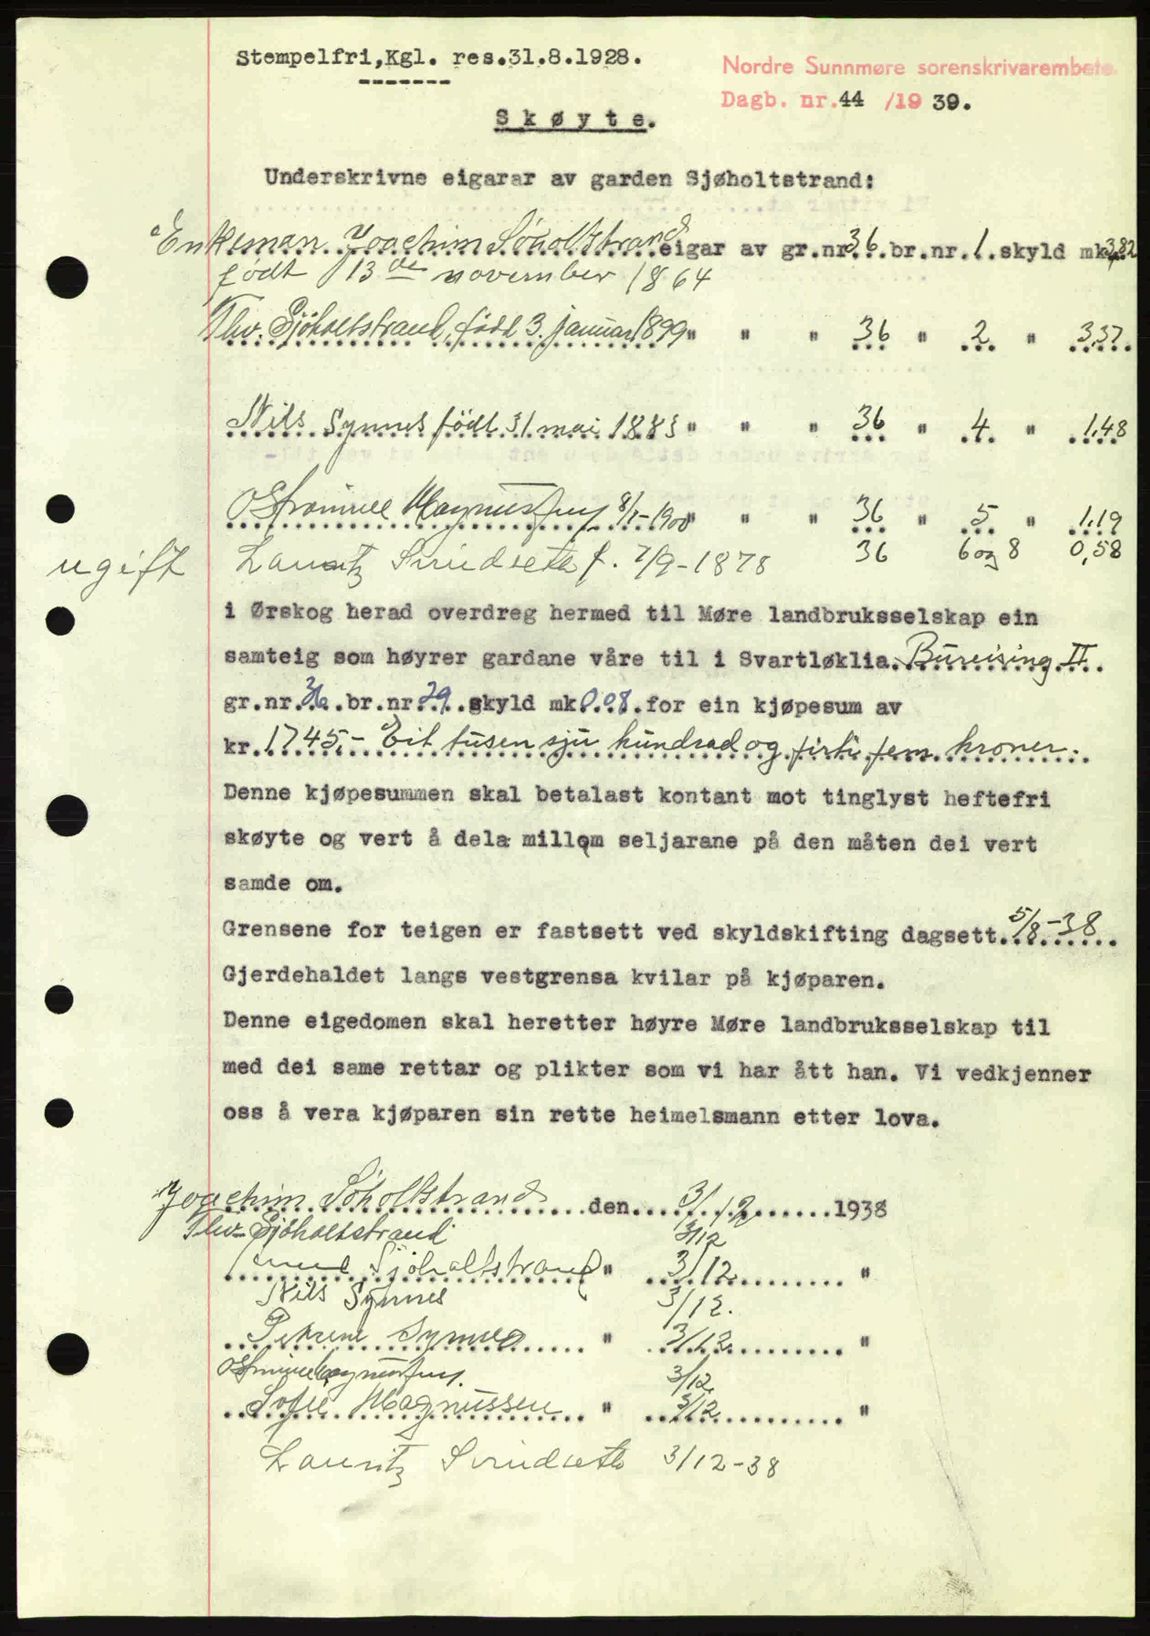 Stempelfri,Kgl. res.31.8.1928.
Nordre Sunnmøre sorenskrivarembete.
Dagb. nr.44 /1939.
Skøyte.
Underskrivne eigarar av garden Sjøholtstrand:
Enkeman Joachim Søholtstrand eigar av gr.nr.36.br.nr.1.skyld mk.3,82
født 13de november 1864
Thv. Sjöholtstrand, född 3. januar 1899 " " " 36 " 2 " 3,37.
Nils Synnes født 31 mai 1883 " " " 36 " 4. " 1,48
O Magnussen 8/1-1900 " " " 36 " 5 " 1,19
ugift Lauritz f. 7/9-1878 36 6 og 8 0,58
i Ørskog herad overdreg hermed til Møre landbruksselskap ein
samteig som høyrer gardane våre til i Svartløklia. Bureising II.
gr.nr.36.br.nr.29.skyld mk.0.08.for ein kjøpesum av
kr.1745.- Eit tusen sju hundrad og firti fem kroner.
Denne kjøpesummen skal betalast kontant mot tinglyst heftefri
skøyte og vert å dela millom seljarane på den måten dei vert
samde om.
Grensene for teigen er fastsett ved skyldskifting dagsett.5/8-38
Gjerdehaldet langs vestgrensa kvilar på kjøparen.
Denne eigedomen skal heretter høyre Møre landbruksselskap til
med dei same rettar og plikter som vi har ått han. Vi vedkjenner
oss å vera kjøparen sin rette heimelsmann etter lova.
Joachim Søholtstrand den 3/12 1938
Thv. Sjöholtstrand 3/12
Sjöholtstrand " 3/12 "
Nils Synnes 3/12.
Petrine Synnes " 3/12 "
O Magnussen. 3/12
Sofie Magnussen " 3/12 "
Lauritz 3/12-38